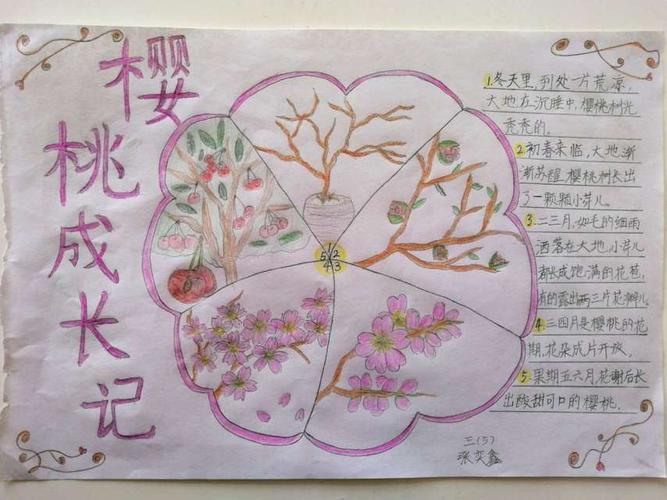 樱桃成长记
1.冬天里,到处一片荒凉,
大地在沉睡中,樱桃树光
秃秃的.
2.初春来临,大地渐
渐苏醒,樱桃树长出
了一颗颗小芽儿.
3.二三月,如毛的细雨
洒落在大地,小芽儿
都长成饱满的花苞,
有的露出两三片花瓣儿
4.三四月是樱桃的花
期,花朵成片开放.
5.果期五六月,花谢后长
出酸甜可口的樱桃.
5 1 2
4 3
三(5)
张奕鑫